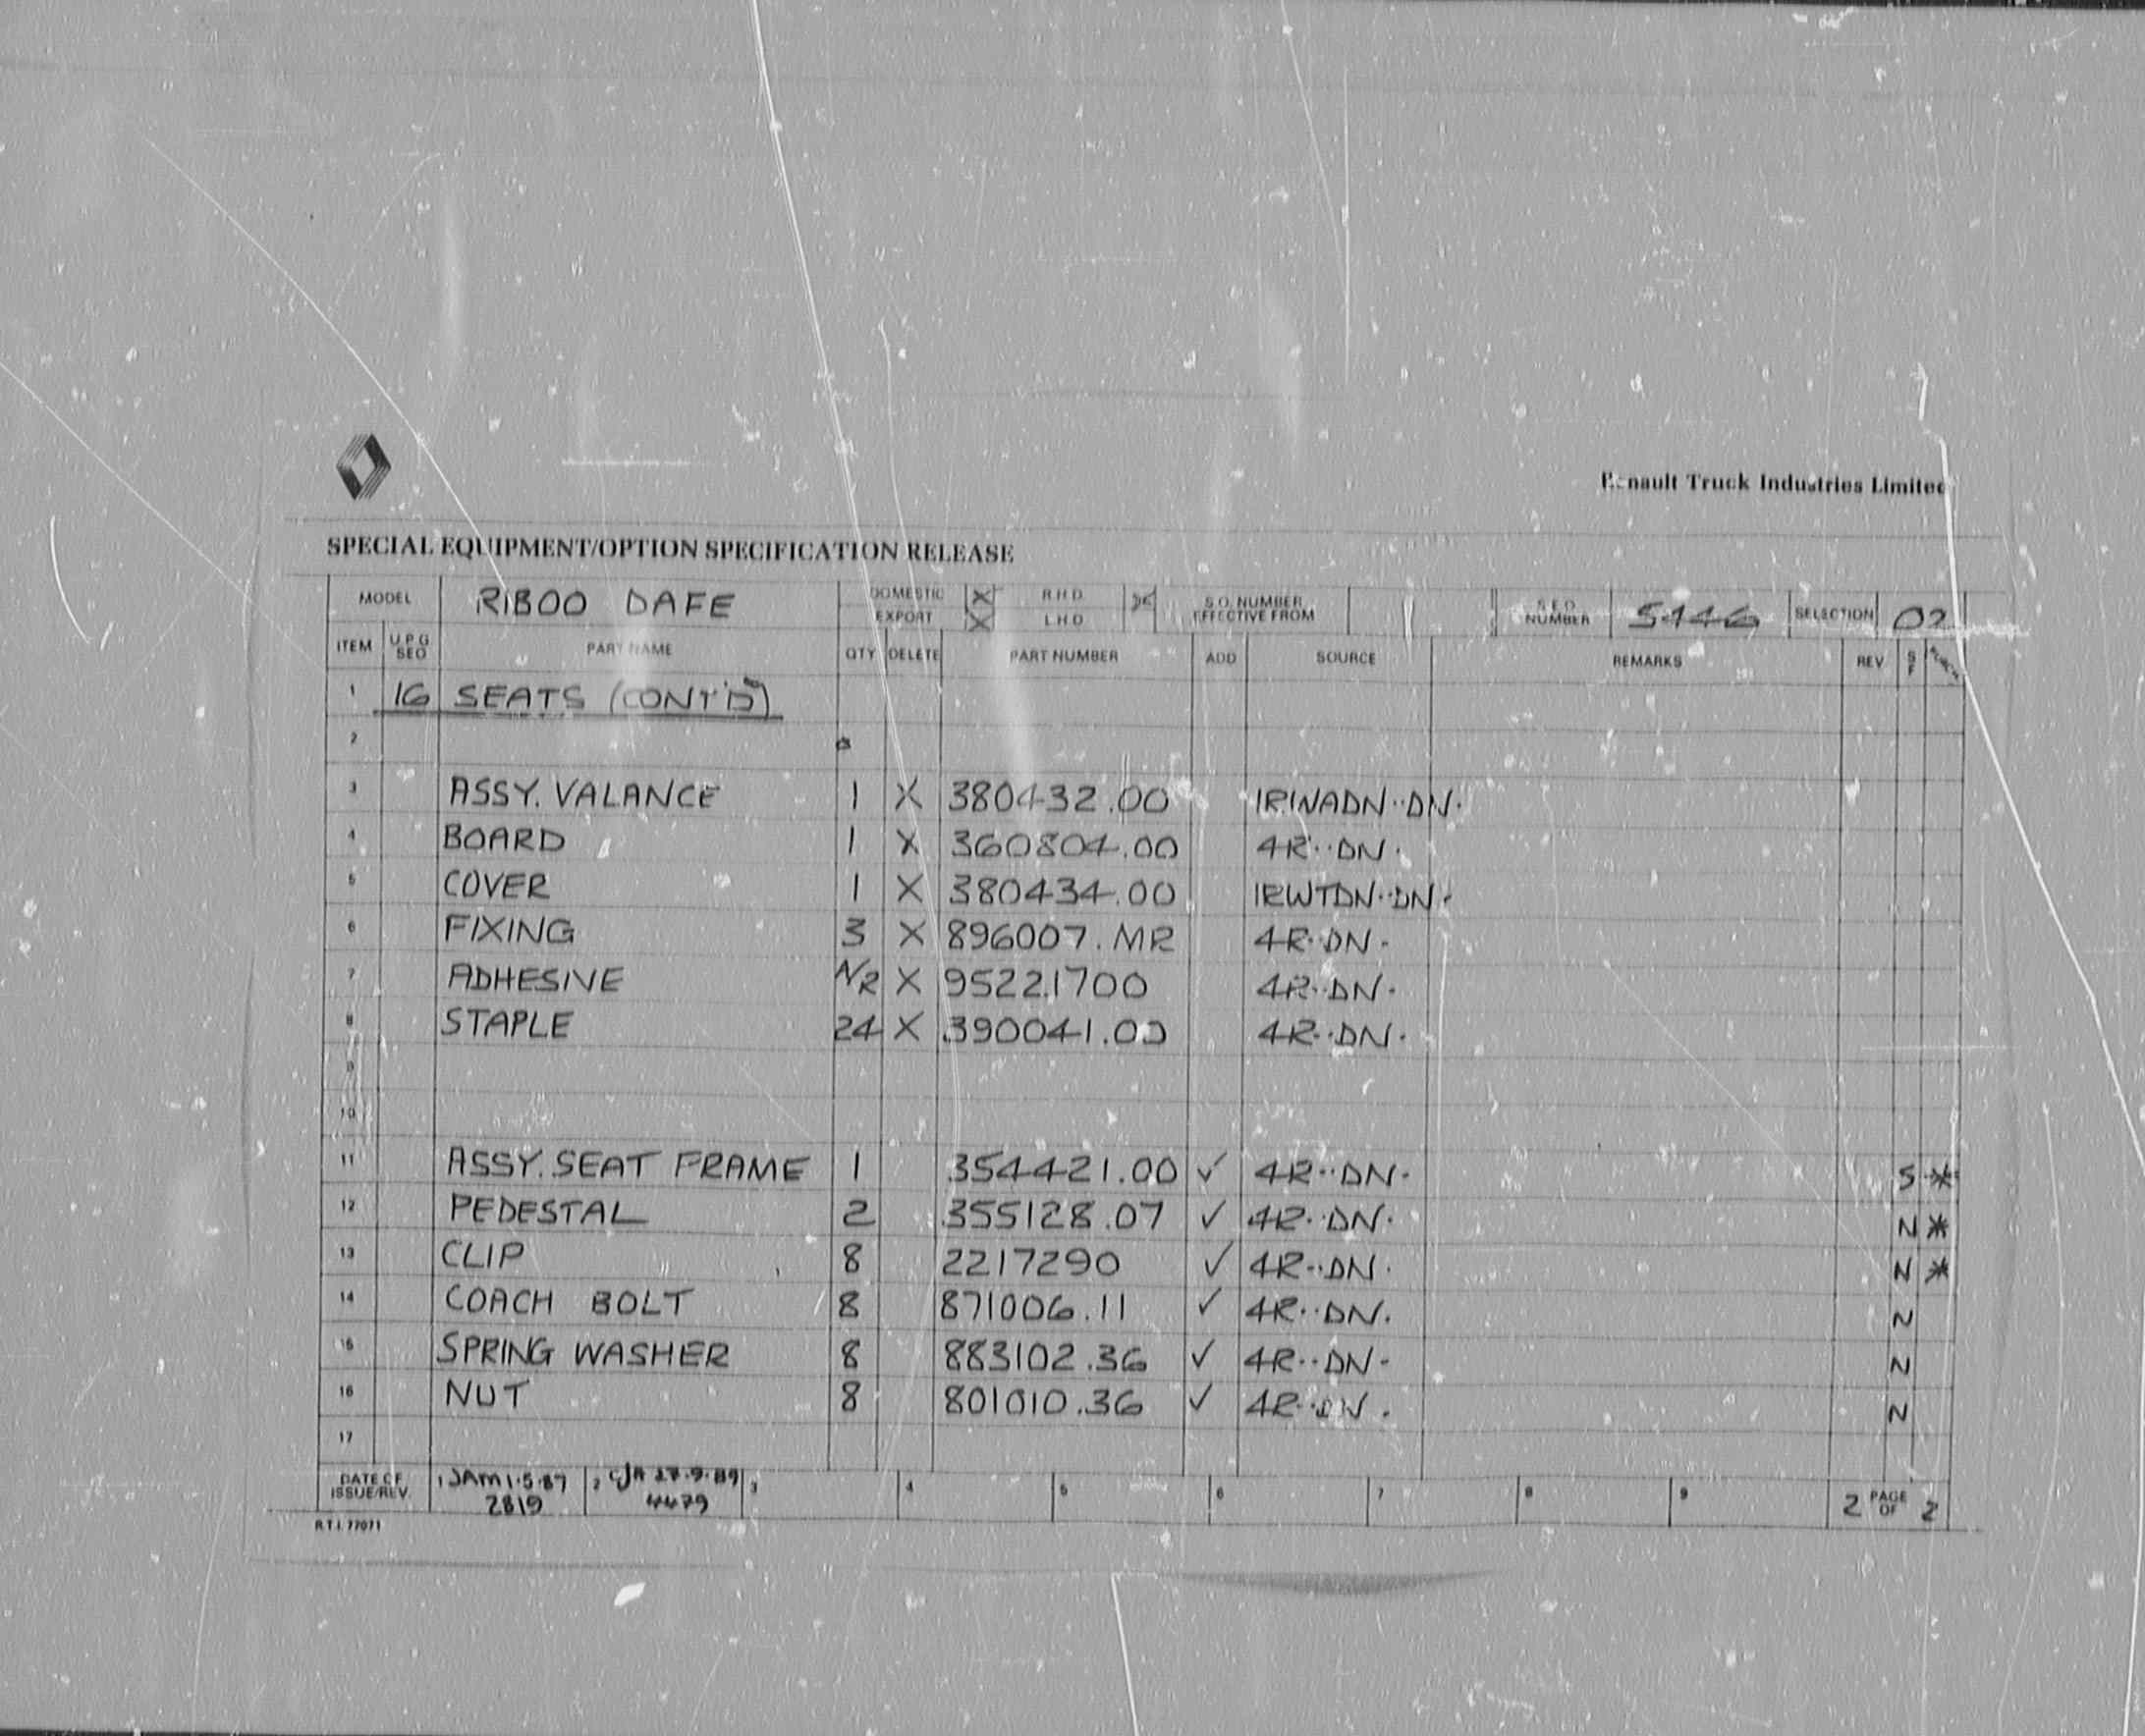 Renault Truck Industries Limited
SPECIAL EQUIPMENT/OPTION SPECIFICATION RELEASE
MODEL RIBOO DAFE DOMESTIC X R.H.D. X S.O. NUMBER S.E.O. 5446 SELECTION 02
EXPORT X L.H.D. EFFECTIVE FROM NUMBER
ITEM U.P.G SEQ PART NAME QTY DELETE PART NUMBER ADD SOURCE REMARKS REV S F
1 16 SEATS (CONT'D)
2
3 ASSY. VALANCE 1 X 380432.00 IRWADN··DN·
4 BOARD 1 X 360804.00 4R··DN·
5 COVER 1 X 380434.00 IRWTDN··DN·
6 FIXING 3 X 896007.MR 4R··DN·
7 ADHESIVE N/R X 95221700 4R··DN·
8 STAPLE 24 X 390041.00 4R··DN·
9
10
11 ASSY. SEAT FRAME 1 354421.00 ✓ 4R··DN· S *
12 PEDESTAL 2 355128.07 ✓ 4R··DN· N *
13 CLIP 8 2217290 ✓ 4R··DN· N *
14 COACH BOLT 8 871006.11 ✓ 4R··DN. N
15 SPRING WASHER 8 883102.36 ✓ 4R··DN· N
16 NUT 8 801010.36 ✓ 4R··DN. N
17
DATE OF ISSUE/REV. 1 JAM 1·5·87 2819 2 CJA 27·9·89 4479 3 4 5 6 7 8 9 2 PAGE OF 2
R.T.I. 77071